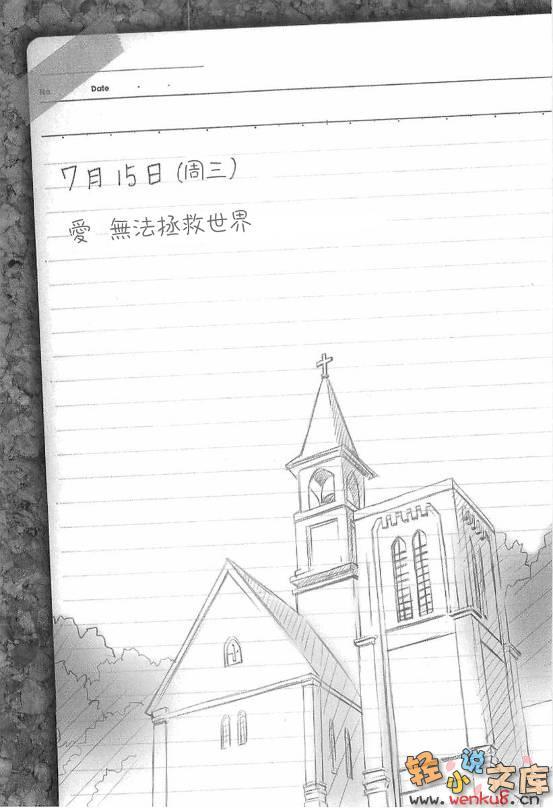 No.
Date
7月15日(周三)
愛 無法拯救世界
轻小说文库
www.wenku8.cn